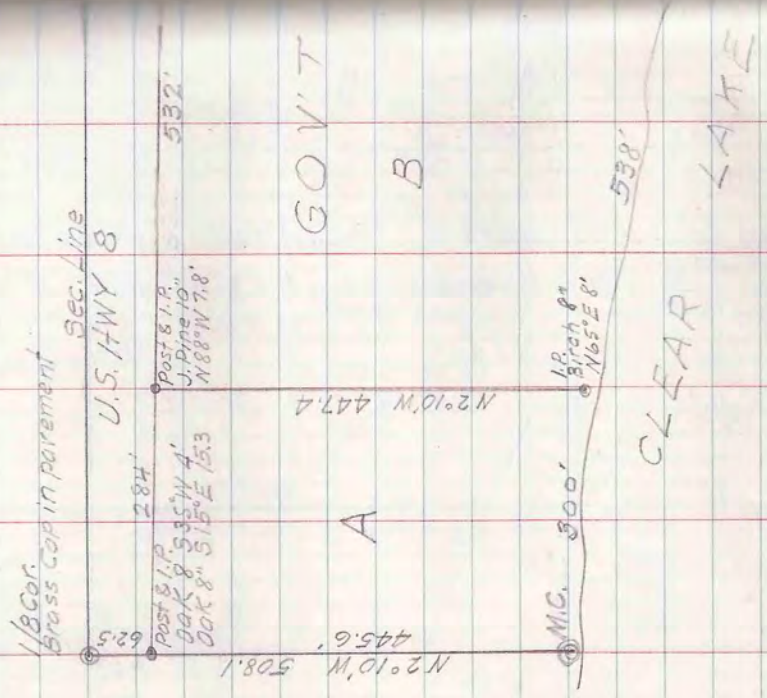 1/8 Cor.
Brass Cap in pavement
Sec. Line
U.S. HWY 8
62.5
284'
532'
Post & I.P.
Oak 8" S35°W 4'
Oak 8" S15°E 15.3
Post & I.P.
J. Pine 10"
N88°W 7.8'
GOV'T
A
B
N2°10'W 508.1
445.6'
N2°10'W 447.4
I.P.
Birch 8"
N65°E 8'
M.C.
300'
538'
CLEAR
LAKE